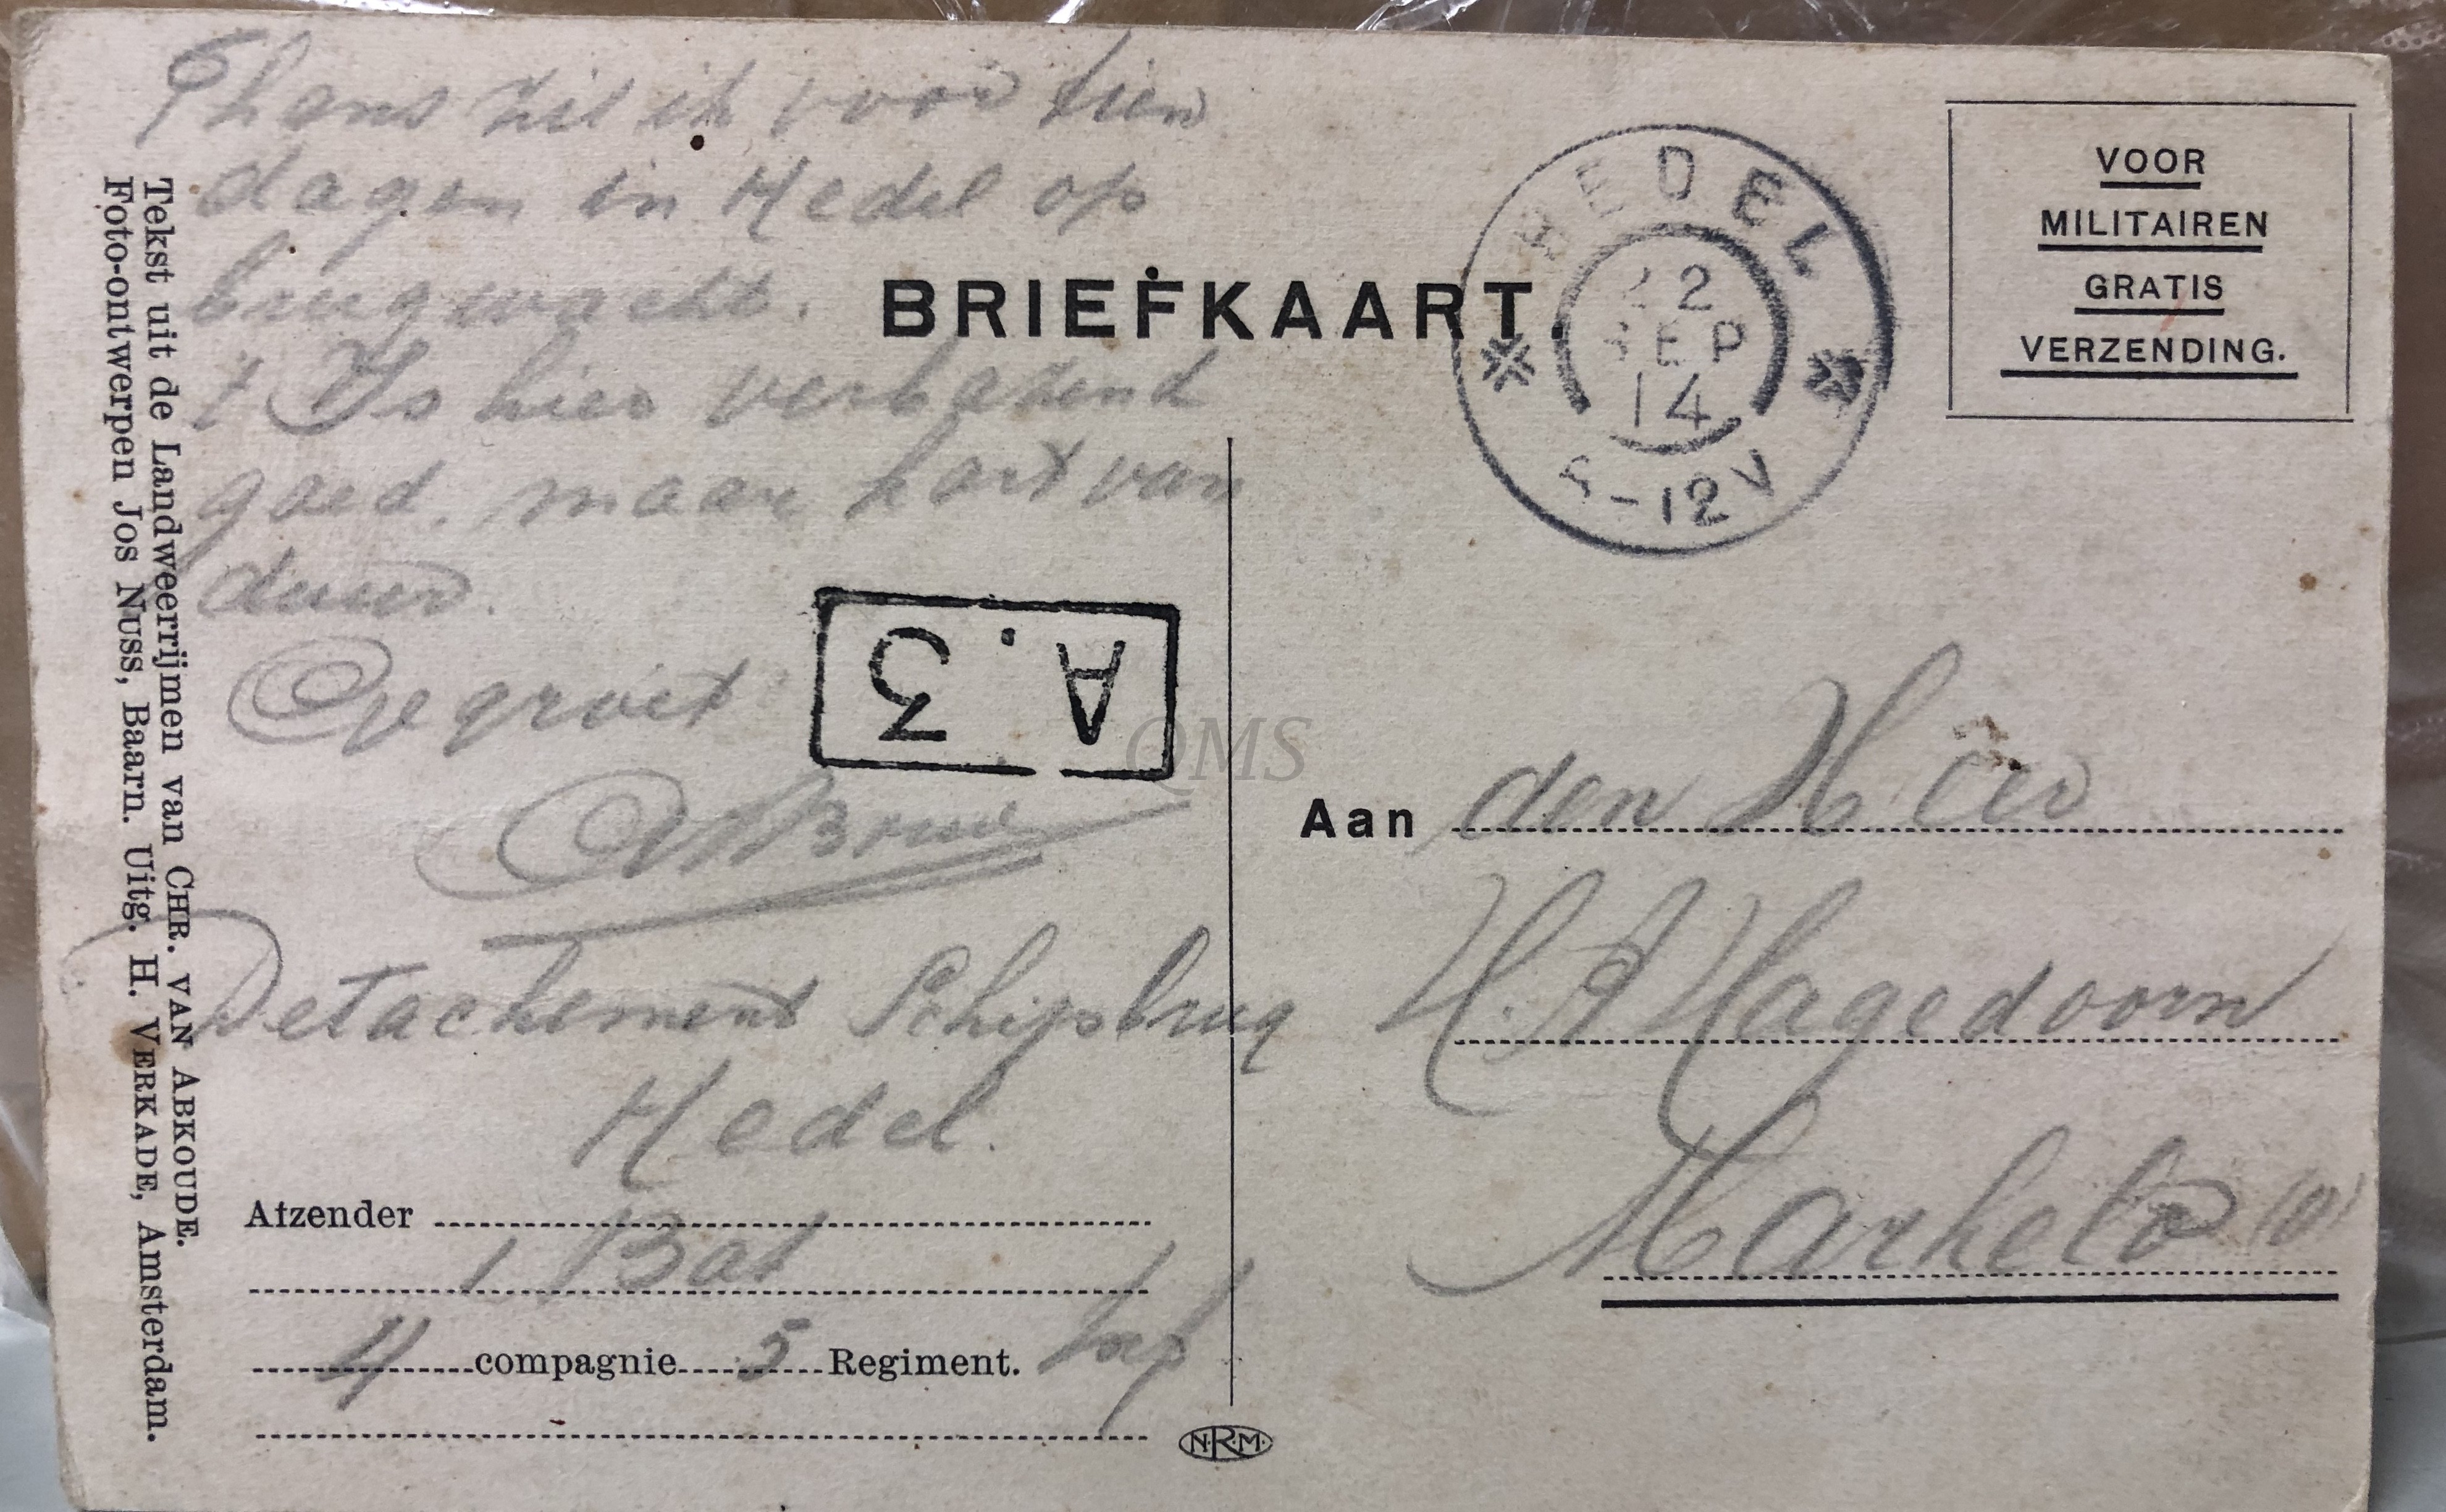 Thans zit ik voor tien
dagen in Hedel op
brugwacht.
't Is hier verbazend
goed, maar kort van
duur.
Gegroet
Detachement Schipbrug
Hedel.
Afzender
1 Bat
4 compagnie 5 Regiment. Inf
BRIEFKAART.
HEDEL
22
SEP
14
8-12V
VOOR
MILITAIREN
GRATIS
VERZENDING.
A. 3
QMS
Aan den Heer
H. A Hagedoorn
Markelo (O)
N.R.M.
Tekst uit de Landweerrijmen van CHR. VAN ABKOUDE.
Foto-ontwerpen JOS NUSS, Baarn. Uitg. H. VERKADE, Amsterdam.